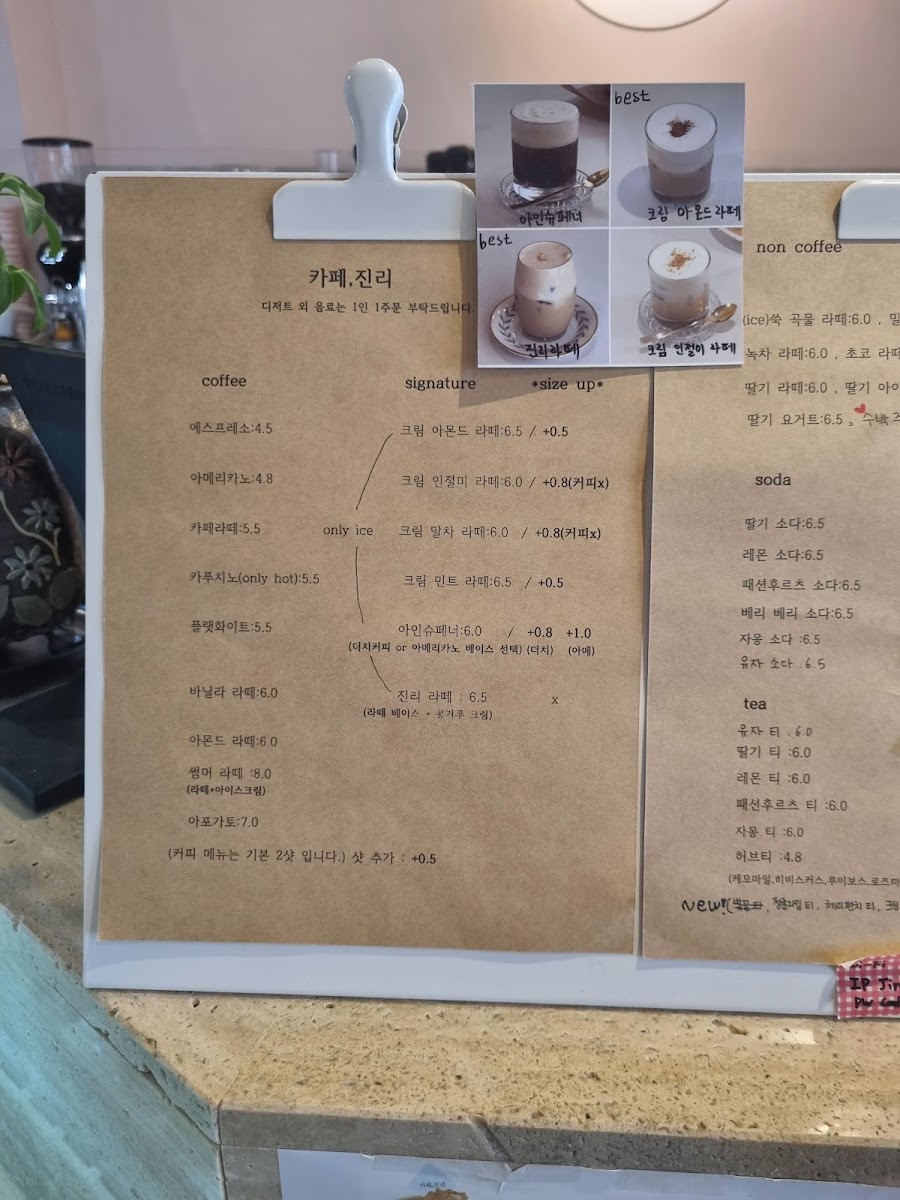 best
아인슈페너
크림 아몬드라떼
best
진리라떼
크림 인절미 라떼
카페,진리
디저트 외 음료는 1인 1주문 부탁드립니다.
coffee
에스프레소:4.5
아메리카노:4.8
카페라떼:5.5
카푸치노(only hot):5.5
플랫화이트:5.5
바닐라 라떼:6.0
아몬드 라떼:6.0
썸머 라떼 :8.0
(라떼+아이스크림)
아포가토:7.0
(커피 메뉴는 기본 2샷 입니다.) 샷 추가 : +0.5
signature *size up*
only ice
크림 아몬드 라떼:6.5 / +0.5
크림 인절미 라떼:6.0 / +0.8(커피x)
크림 말차 라떼:6.0 / +0.8(커피x)
크림 민트 라떼:6.5 / +0.5
아인슈페너:6.0 / +0.8 +1.0
(더치커피 or 아메리카노 베이스 선택) (더치) (아메)
진리 라떼 : 6.5 x
(라떼 베이스 + 콩가루 크림)
non coffee
(ice)쑥 곡물 라떼:6.0 ,
녹차 라떼:6.0 , 초코 라떼
딸기 라떼:6.0 , 딸기
딸기 요거트:6.5
soda
딸기 소다:6.5
레몬 소다:6.5
패션후르츠 소다:6.5
베리 베리 소다:6.5
자몽 소다 :6.5
유자 소다 .6.5
tea
유자 티 .6.0
딸기 티 :6.0
레몬 티 :6.0
패션후르츠 티 :6.0
자몽 티 :6.0
허브티 :4.8
(케모마일,히비스커스,루이보스,로즈
New!
IP Jin
PW